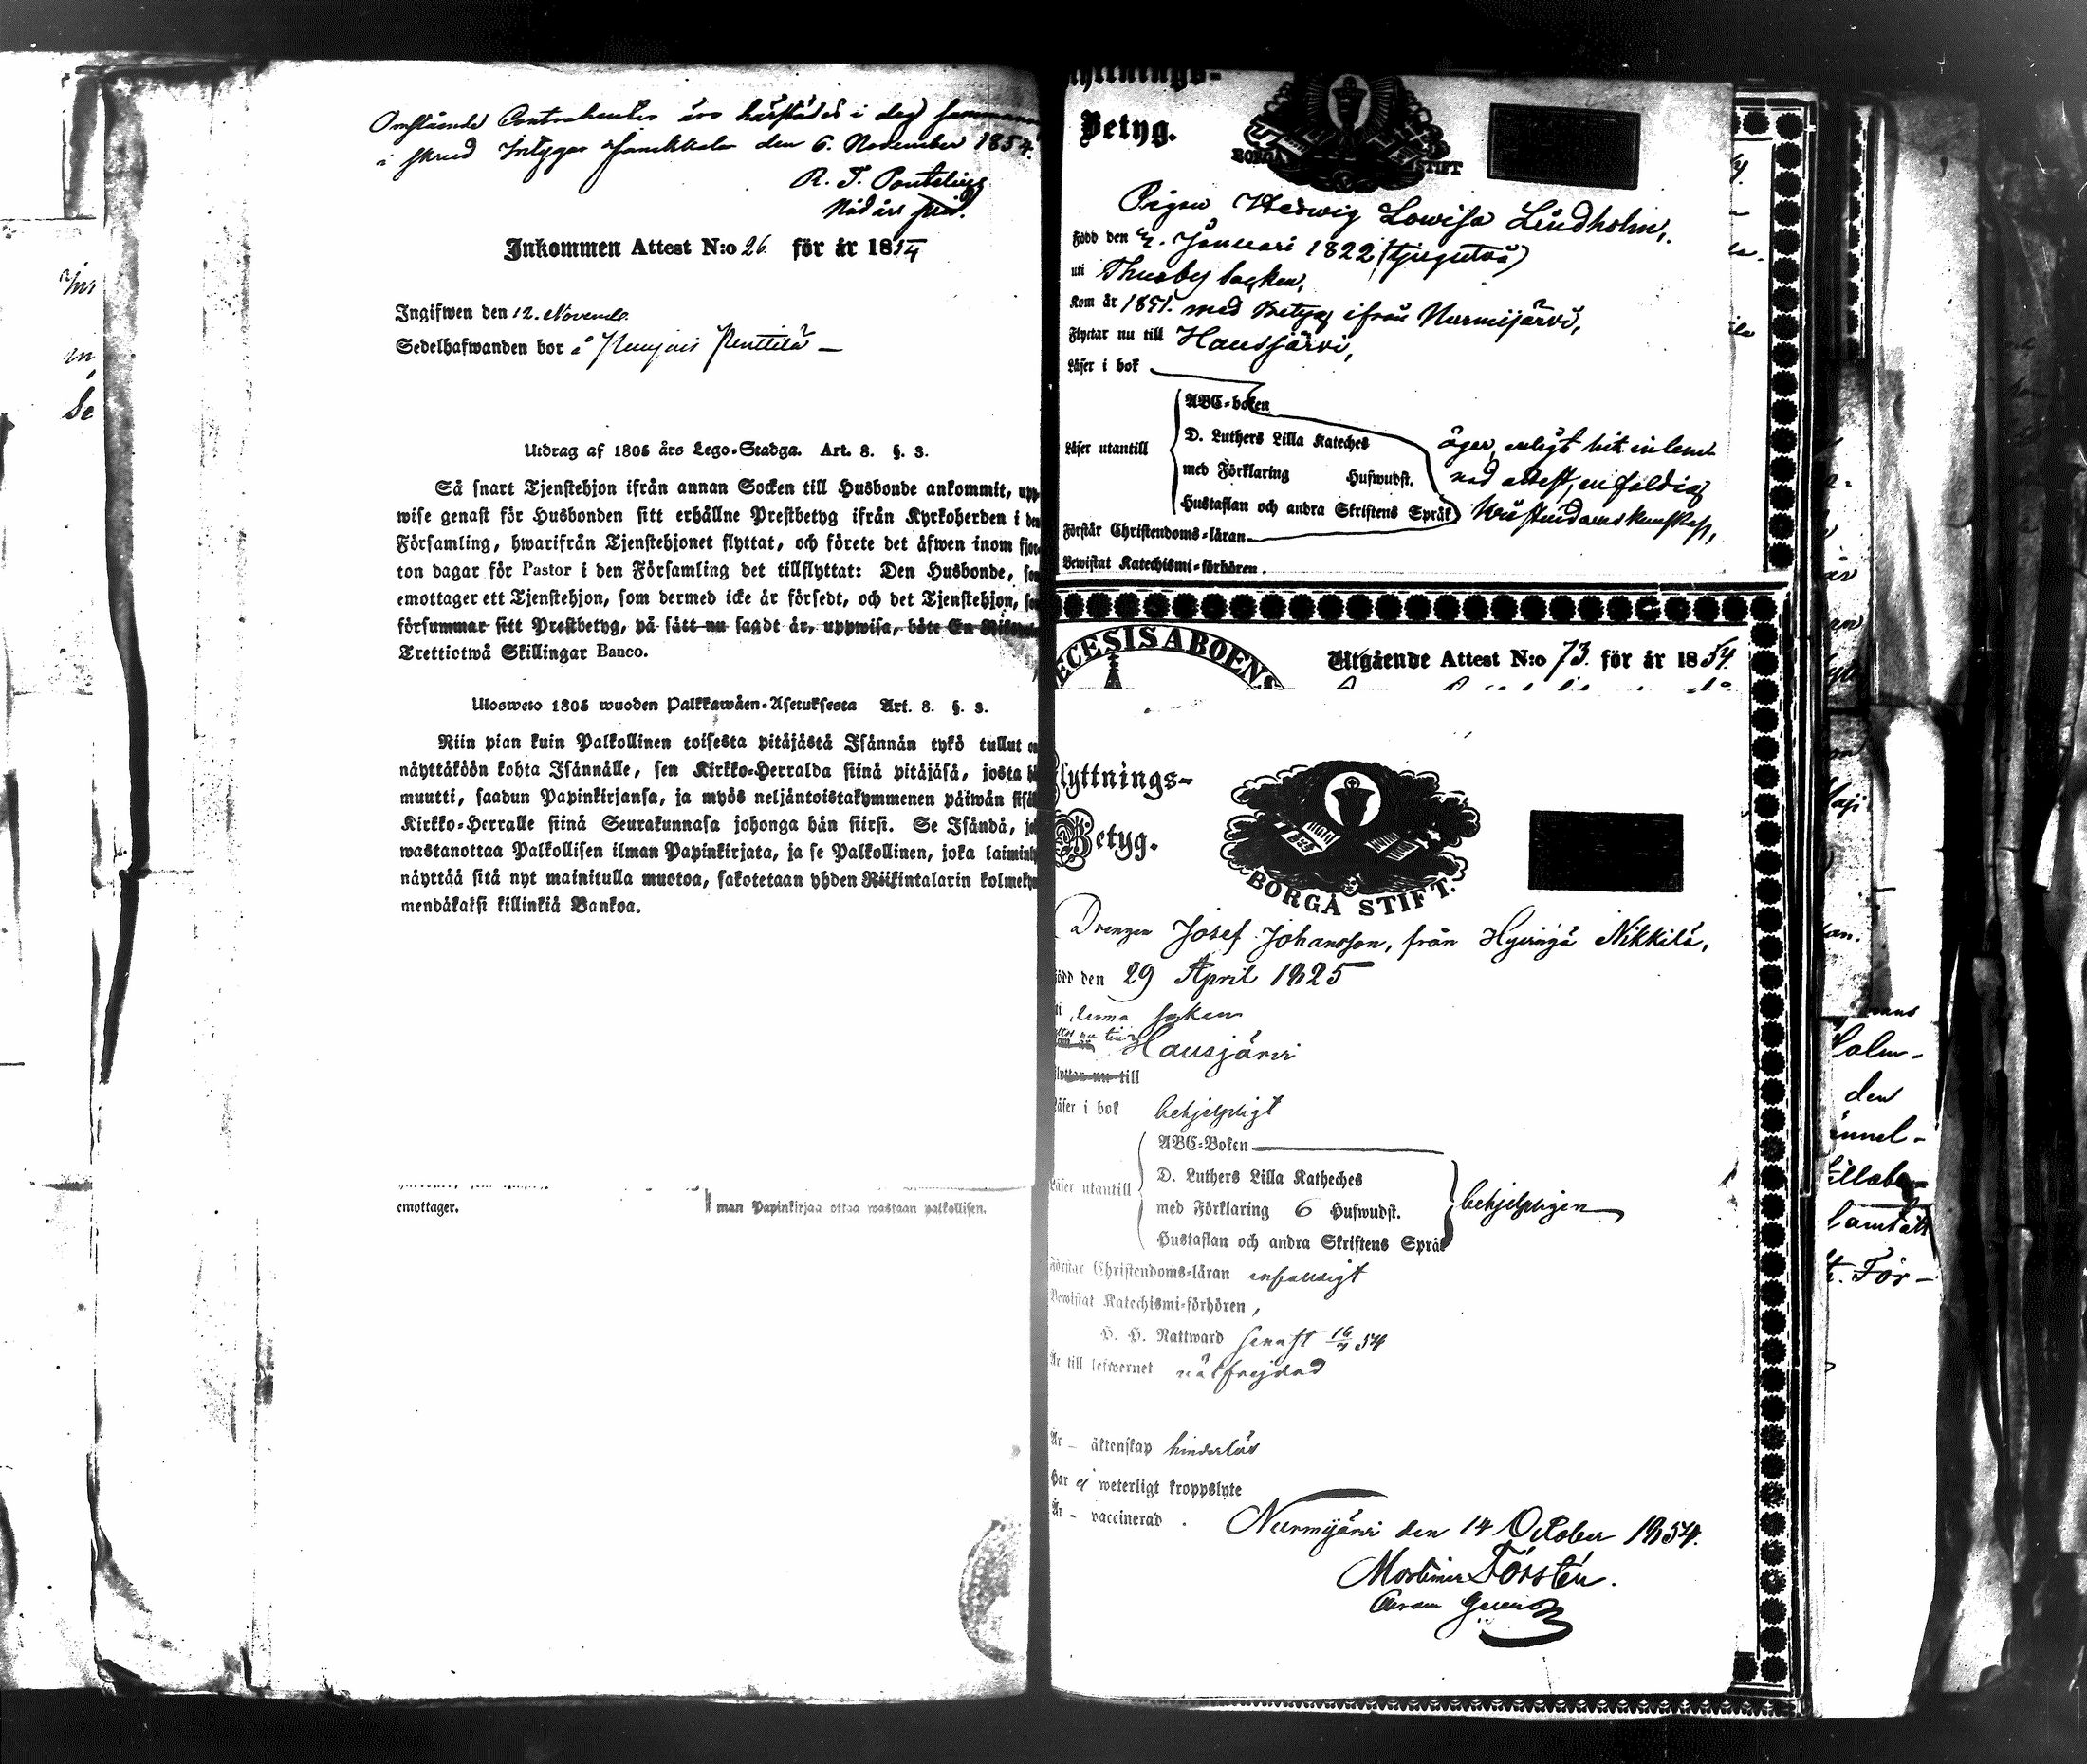 Omstående Contrahenter äro härstädes i dag sammanv
i skrud Intygar Janakkala den 6. November 1854.
R. J. Pontelius
Inkommen Attest N:o 26. för år 1854
Ingifwen den 12. Novemb.
Sedelhafwanden bor å Penttilä —
Utdrag af 1805 års Lego-Stadga. Art. 8. §. 3.
Så snart Tjenstehjon ifrån annan Socken till Husbonde ankommit, upp-
wise genast för Husbonden sitt erhållne Prestbetyg ifrån Kyrkoherden i den
Församling, hwarifrån Tjenstehjonet flyttat, och förete det äfwen inom fjor-
ton dagar för Pastor i den Församling det tillflyttat: Den Husbonde, som
emottager ett Tjenstehjon, som dermed icke är försedt, och det Tjenstehjon, som
försummar sitt Prestbetyg, på sätt nu sagdt är, uppwisa, böte En Riksdaler
Trettiotwå Skillingar Banco.
Ulosweto 1805 wuoden Palkkawäen-Asetuksesta Art. 8. §. 3.
Niin pian kuin Palkollinen toisesta pitäjästä Isännän tykö tullut on
näyttäköön kohta Isännälle, sen Kirkko-Herralda siinä pitäjäsä, josta hän
muutti, saadun Papinkirjansa, ja myös neljäntoistakymmenen päiwän sisäl
Kirkko-Herralle siinä Seurakunnasa johonga hän siirsi. Se Isändä, jo
wastanottaa Palkollisen ilman Papinkirjata, ja se Palkollinen, joka laiminly
näyttää sitä nyt mainitulla muotoa, sakotetaan yhden Riikintalarin kolmekym
mendäkaksi killinkiä Bankoa.
emottager.
man Papinkirjaa ottaa wastaan palkollisen.
Flyttnings-
Betyg.
BORGÅ STIFT
Pigan Hedwig Lowisa Lindholm,
Född den 2. Januari 1822 (tjugutvå)
uti Thusby socken,
Kom år 1851. med Betyg ifrån Nurmijärvi,
Flyttar nu till Hausjärvi,
Läser i bok
ABC-boken
Läser utantill D. Luthers Lilla Kateches
med Förklaring Hufwudst.
Hustaflan och andra Skriftens Språk
äger, enligt hit inlem-
nad attest, enfaldig
Kristendomskunskap,
Förstår Christendoms-läran
Bewistat Katechismi-förhören.
ECESIS ABOENS
Utgående Attest N:o 73. för år 1854.
Flyttnings-
Betyg.
BORGÅ STIFT.
Drengen Josef Johansson, från Hyvingä Nikkilä,
Född den 29 April 1825
uti denna soken
flyttar nu till Hausjärvi
Kom år
Flyttar nu till
Läser i bok behjelpligt
ABC-Boken
D. Luthers Lilla Katheches
Läser utantill
med Förklaring 6 Hufwudst. behjelpligen
Hustaflan och andra Skriftens Språk
Förstår Christendoms-läran enfaldigt
Bewistat Katechismi-förhören,
H. H. Nattward senast 16/7 54
Är till lefwernet välfrejdad
Är – äktenskap hinderlös
Har ej weterligt kroppslyte
Är – vaccinerad.
Nurmijärvi den 14 October 1854.
Mortimer Forstén.